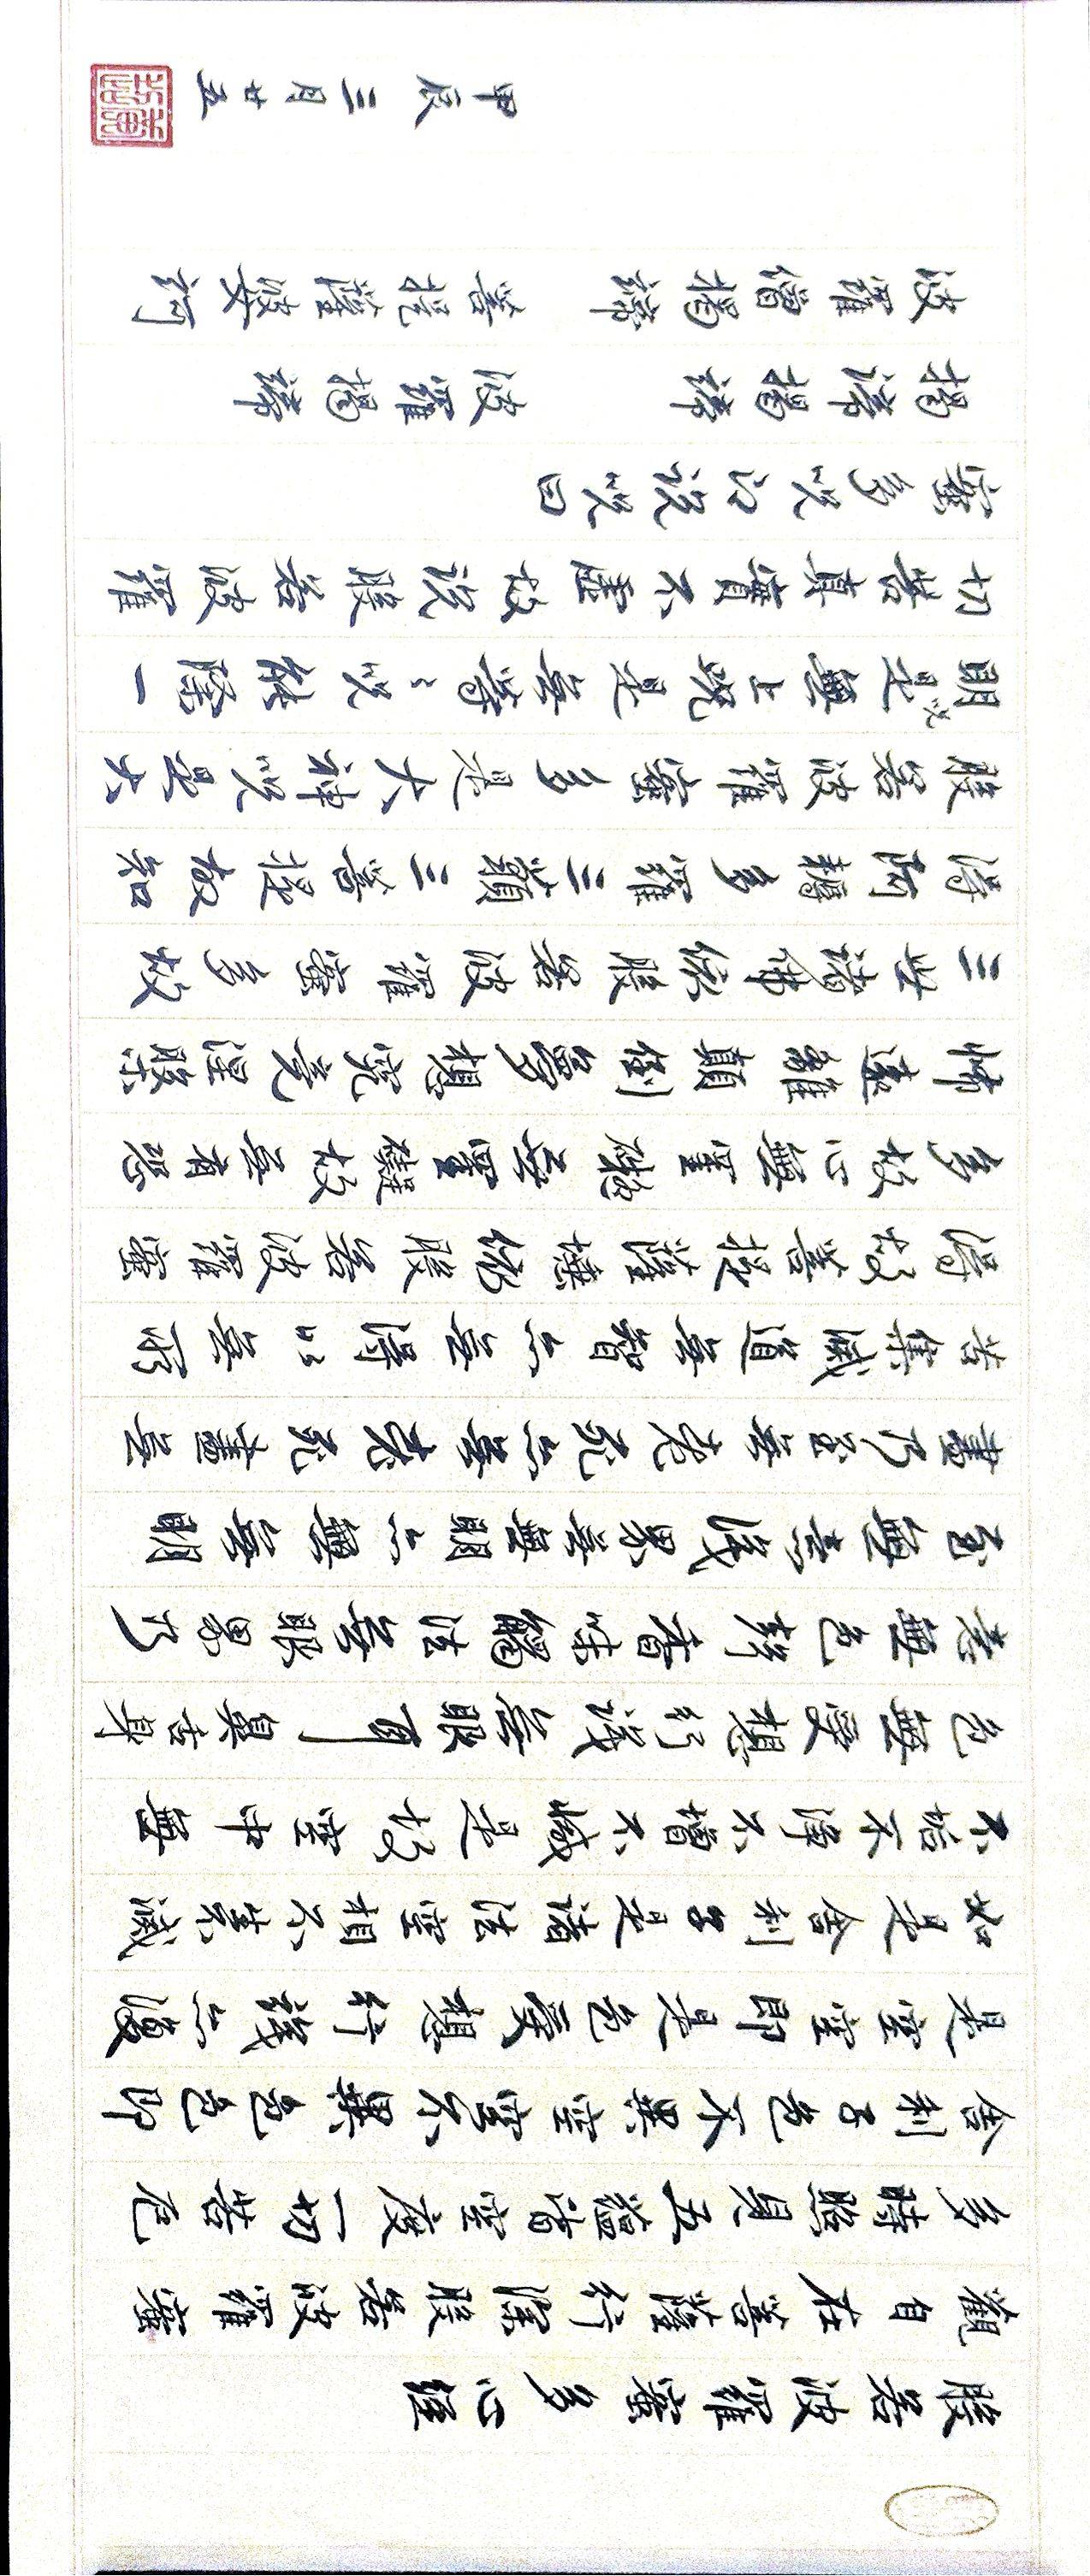 般若波羅蜜多心經
觀自在菩薩行深般若波羅蜜
多時照見五蘊皆空度一切苦厄
舍利子色不異空空不異色色即
是空空即是色受想行識亦復
如是舍利子是諸法空相不生不滅
不垢不淨不增不減是故空中無
色無受想行識無眼耳鼻舌身
意無色聲香味觸法無眼界乃
至無意識界無無明亦無無明
盡乃至無老死亦無老死盡無
苦集滅道無智亦無得以無所
得故菩提薩埵依般若波羅蜜
多故心無罣礙無罣礙故無有恐
怖遠離顛倒夢想究竟涅槃
三世諸佛依般若波羅蜜多故
得阿耨多羅三藐三菩提故知
般若波羅蜜多是大神咒是大
明咒是無上咒是無等〻咒能除一
切苦真實不虛故說般若波羅
蜜多咒即說咒曰
揭諦揭諦 波羅揭諦
波羅僧揭諦 菩提薩婆訶
甲辰三月廿五